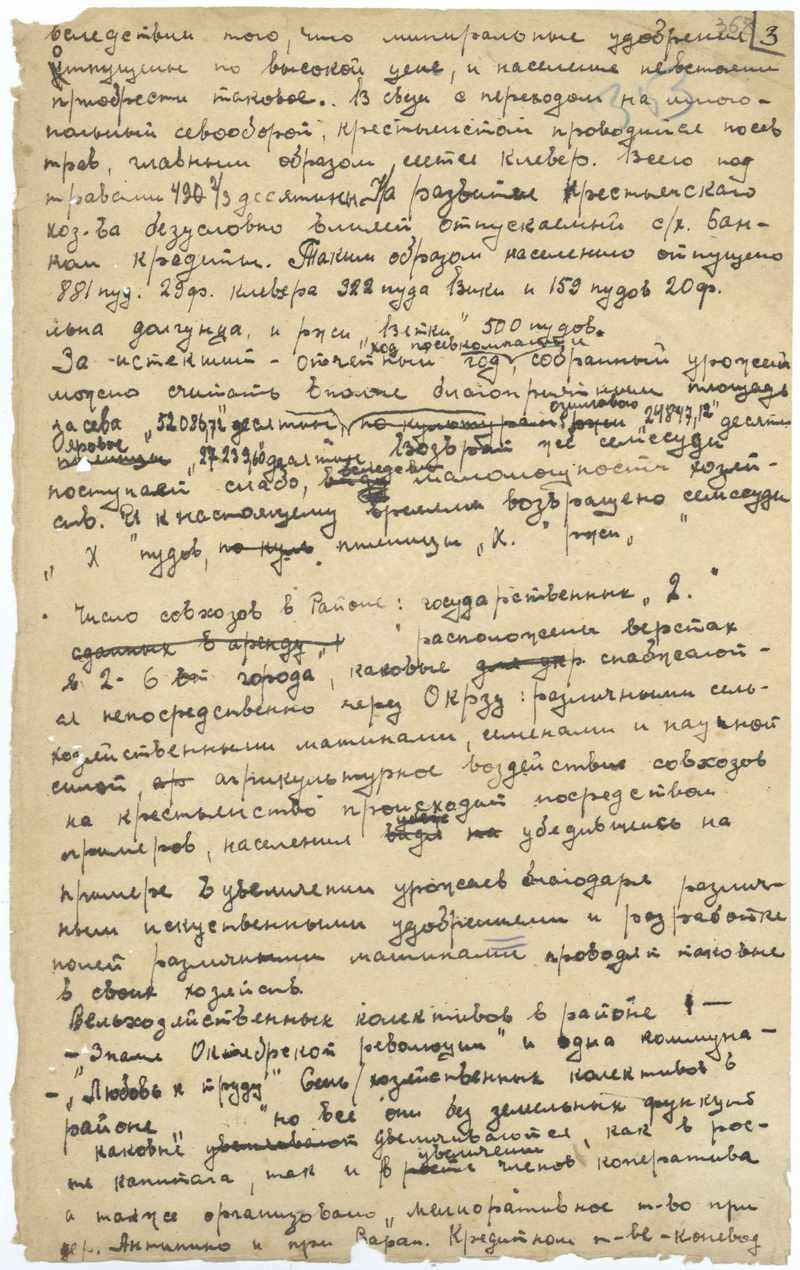 368 3
вследствии того, что миниральные удобрения
отпущены по высокой цене, и население не в состоянии
приобрести таковое. В связи с переходом на много-
польный севооборот, крестьянством проводится посев
трав, главным образом сеется клевер. Всего под
травами 490 2/3 десятины. На развитие крестьянского
хоз-ва безусловно влияет отпускаемый с/х. Бан-
ком кредиты. Таким образом населению отпущено
881 пуд. 29ф. клевера 922 пуда Вики и 159 пудов 20ф.
льна долгунца, и ржи „Вятки" 500 пудов.
ход посевкомпании
За истекший - отчетный год, собранный урожай
можно считать вполне благоприятным площадь
засева „52086,72" десятин, ржи „24847,12" десятин
озимового
яровое „27239,60" десятин Возврат же семссуды
поступает слабо, вследствие маломощности хозяй-
ств. И к настоящему времени возвращено семссуды
„ Х " пудов, пшеницы „Х. " ржи „ "
Число совхозов в Районе: государственных „2."
сданных в аренду „1 " расположены верстах
в 2-6 от города, каковые снабжают-
ся непосредственно через ОКРЗУ: различными сель-
хозяйственными машинами, семенами и научной
силой, агрикультурное воздействие совхозов
на крестьянство происходит посредством
примеров, население убедившись на
примере в увеличении урожаев благодаря различ-
ным искуственными удобрениями и разработке
полей различными машинами проводят таковые
в своих хозяйств.
Вельхозяйственных колективов в районе 1 —
- „Знамя Октябрской революции" и одна коммуна -
- „Любовь к труду" Сель/хозяйственных колективов в
районе „ " но все они без земельных функций
каковые увеличиваются, как в рос-
увеличении
те капитала, так и в росте членов кооператива
а также организовано „мелиоративное т-во при
дер. Антипино и при Кредитном т-ве - коневод